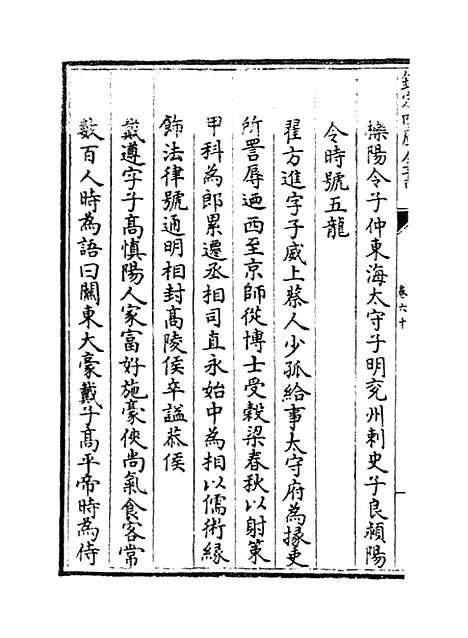 欽定四庫全書
卷六十
櫟陽令子仲東海太守子明兖州刺史子良潁陽
令時號五龍
翟方進字子威上蔡人少孤給事太守府為掾吏
所詈辱廼西至京師從博士受穀梁春秋以射策
甲科為郎累遷丞相司直永始中為相以儒術緣
飾法律號通明相封髙陵侯卒諡恭侯
戴遵字子髙慎陽人家富好施豪俠尚氣食客常
數百人時為語曰關東大豪戴子髙平帝時為侍